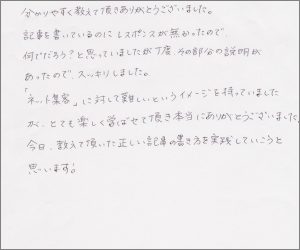 分かりやすく教えて頂きありがとうございました。
記事を書いているのにレスポンスが無かったので、
何でだろう？と思っていましたが丁度、その部分の説明が
あったので、スッキリしました。
「ネット集客」に対して難しいというイメージを持っていました
が、とても楽しく学ばせて頂き本当にありがとうございました。
今日、教えて頂いた正しい記事の書き方を実践していこうと
思います！